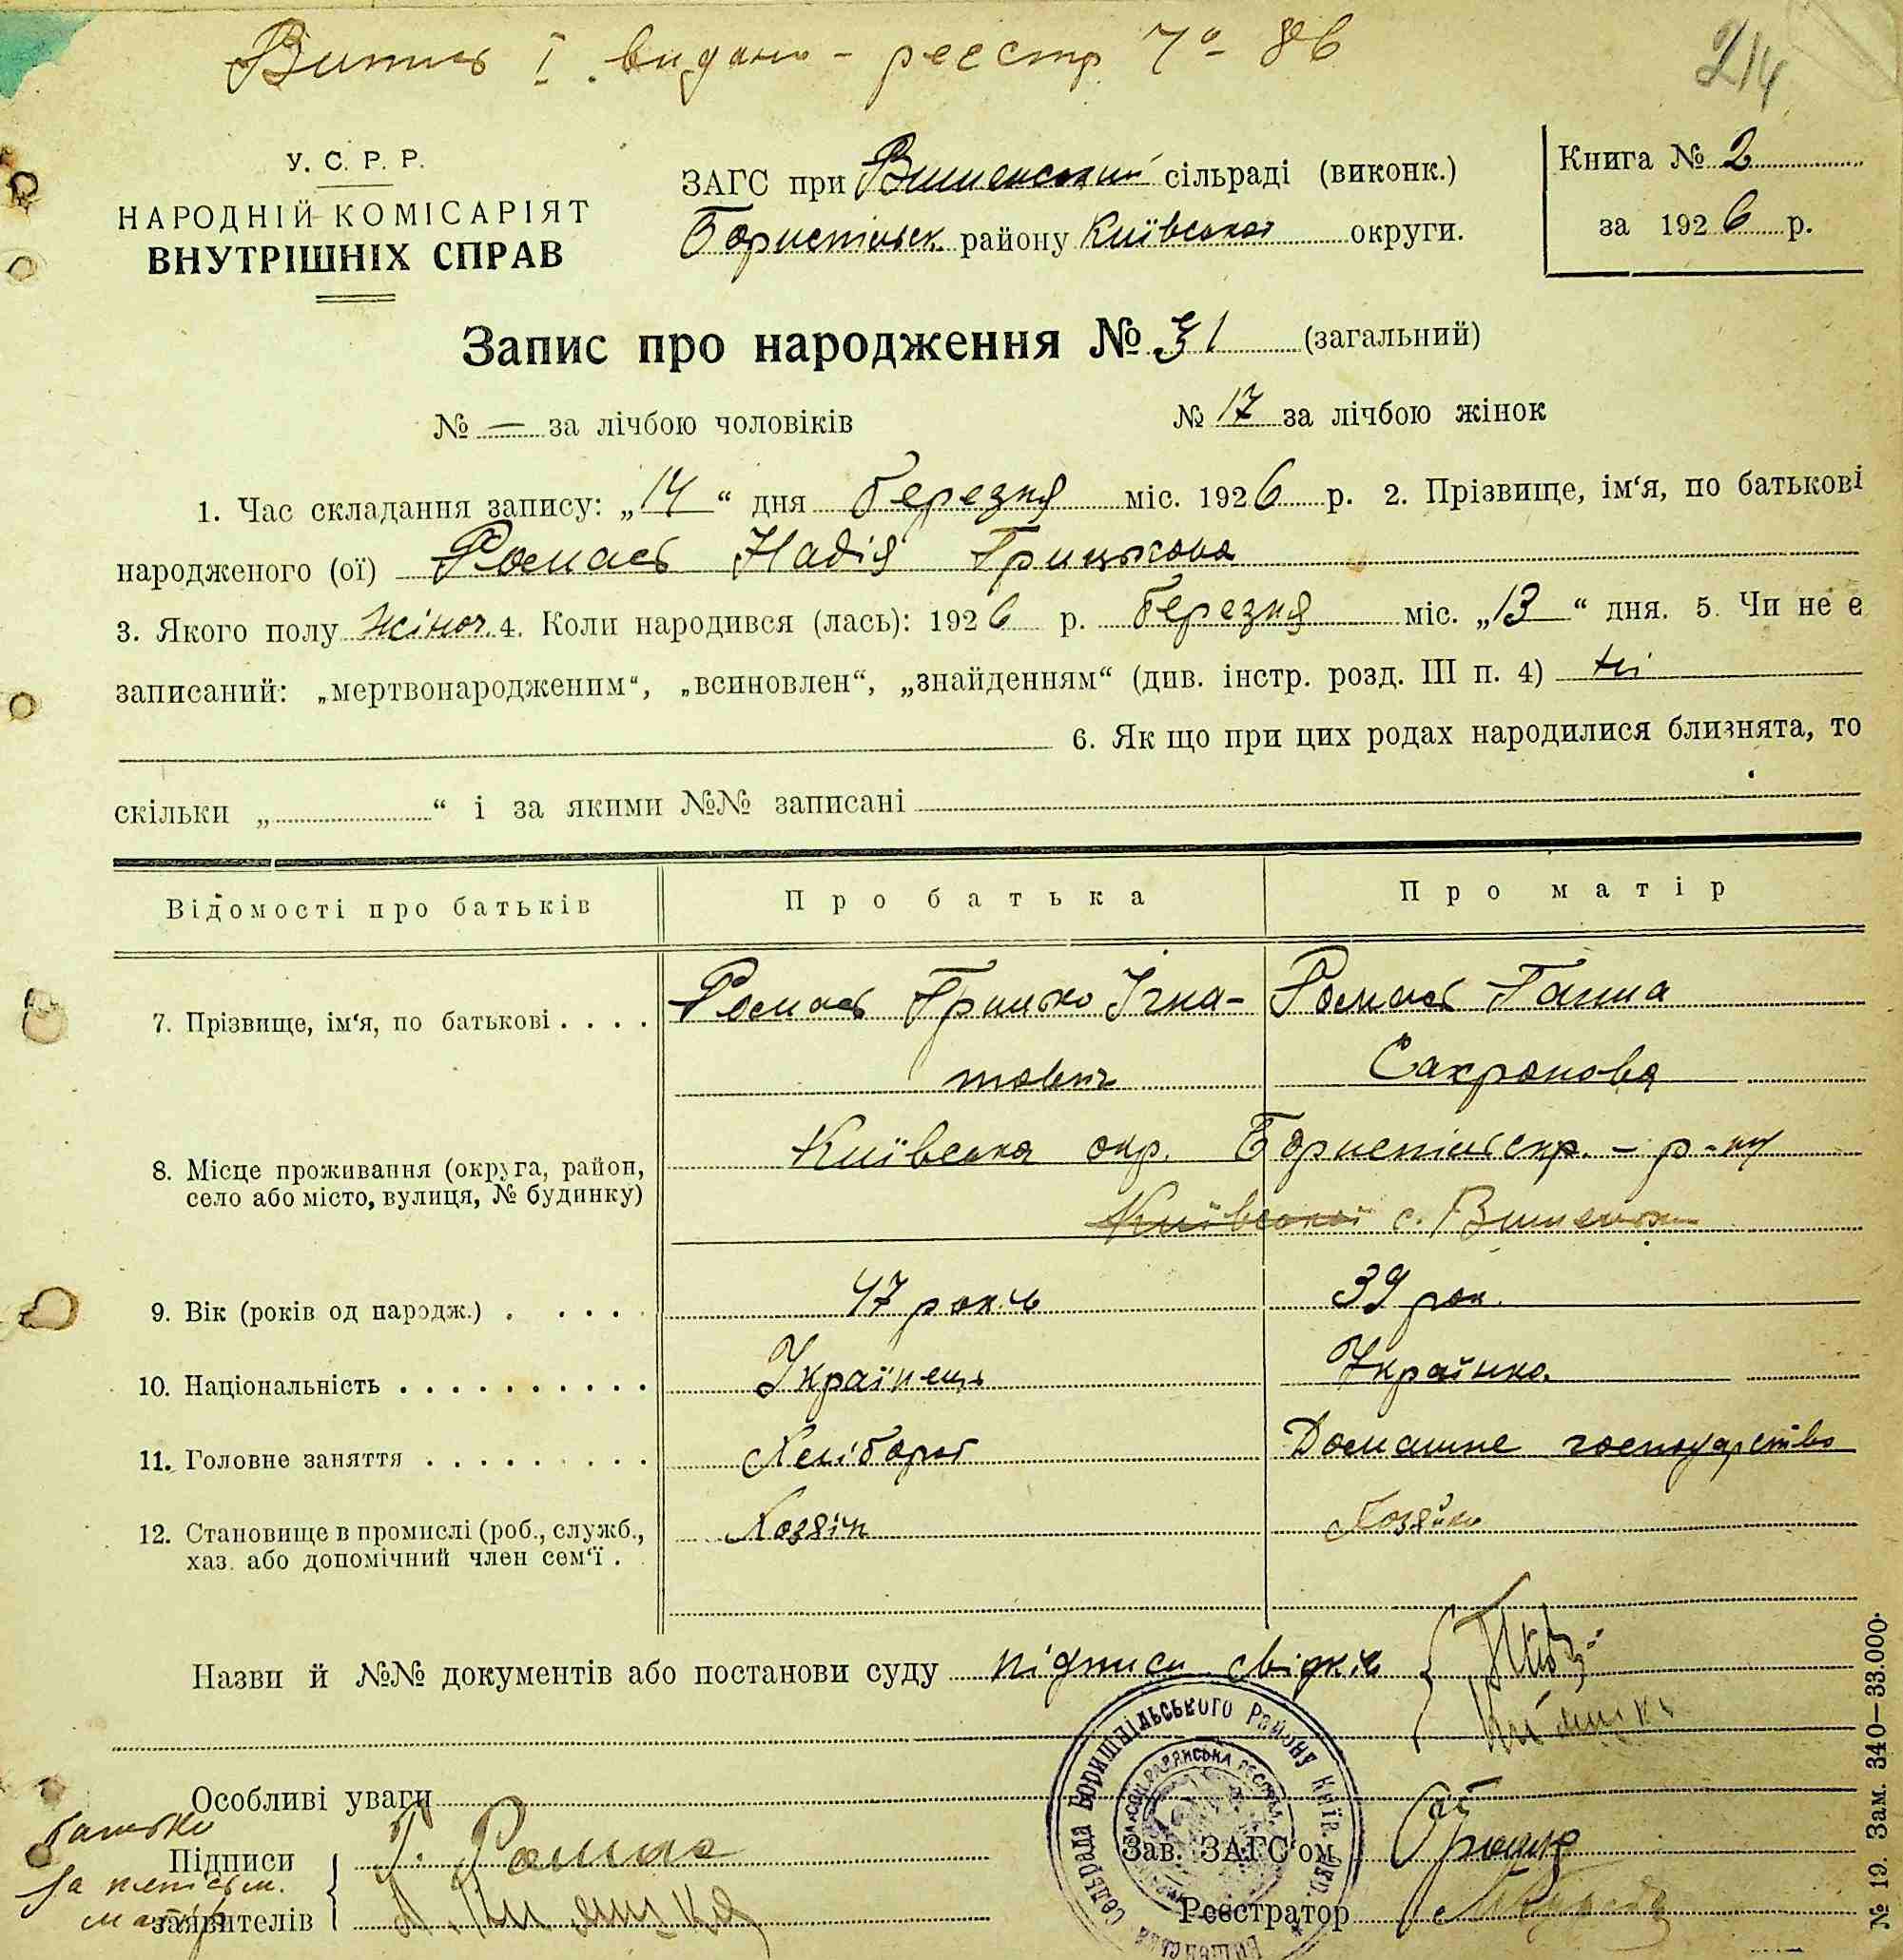 Витис I видано - реєстр 7° 86
214
У. С. Р. Р.
НАРОДНІЙ КОМІСАРІЯТ
ВНУТРІШНІХ СПРАВ
ЗАГС при Вишенський сільраді (виконк.)
Бориспільск. району Київської округи.
Книга № 2
за 1926 р.
Запис про народження № 31 (загальний)
№ — за лічбою чоловіків № 17 за лічбою жінок
1. Час складання запису: „14“ дня березня міс. 1926 р. 2. Прізвище, ім‘я, по батькові
народженого (ої) Ромась Надія Грицькова
3. Якого полу жіноч. 4. Коли народився (лась): 1926 р. березня міс. „13“ дня. 5. Чи не є
записаний: „мертвонародженим“, „всиновлен“, „знайденням“ (див. інстр. розд. III п. 4) ні
6. Як що при цих родах народилися близнята, то
скільки „ “ і за якими №№ записані
Відомості про батьків Про батька Про матір
7. Прізвище, ім‘я, по батькові . . . . Ромась Грицько Ігна- Ромась Ганна
тович Сахронова
8. Місце проживання (округа, район, Київська окр. Бориспільськ. - р-ну
село або місто, вулиця, № будинку) Київської с. Вишеньки
9. Вік (років од народж.) . . . . 47 років 39 рок.
10. Національність . . . . . . . . . . Українець Українка
11. Головне заняття . . . . . . . . . Хлібороб Домашне господарство
12. Становище в промислі (роб., служб., Хозяін Хозяйка
хаз. або допомічний член сем‘ї .
Назви й №№ документів або постанови суду підписи свідків
Особливі уваги
батько
Підписи Г. Ромас
за неписьм.
матір
заявителів
Зав. ЗАГС‘ом
Реєстратор
Сельрада Боришпільського Району Київ. Окр.
№ 19. Зам. 340—33.000.